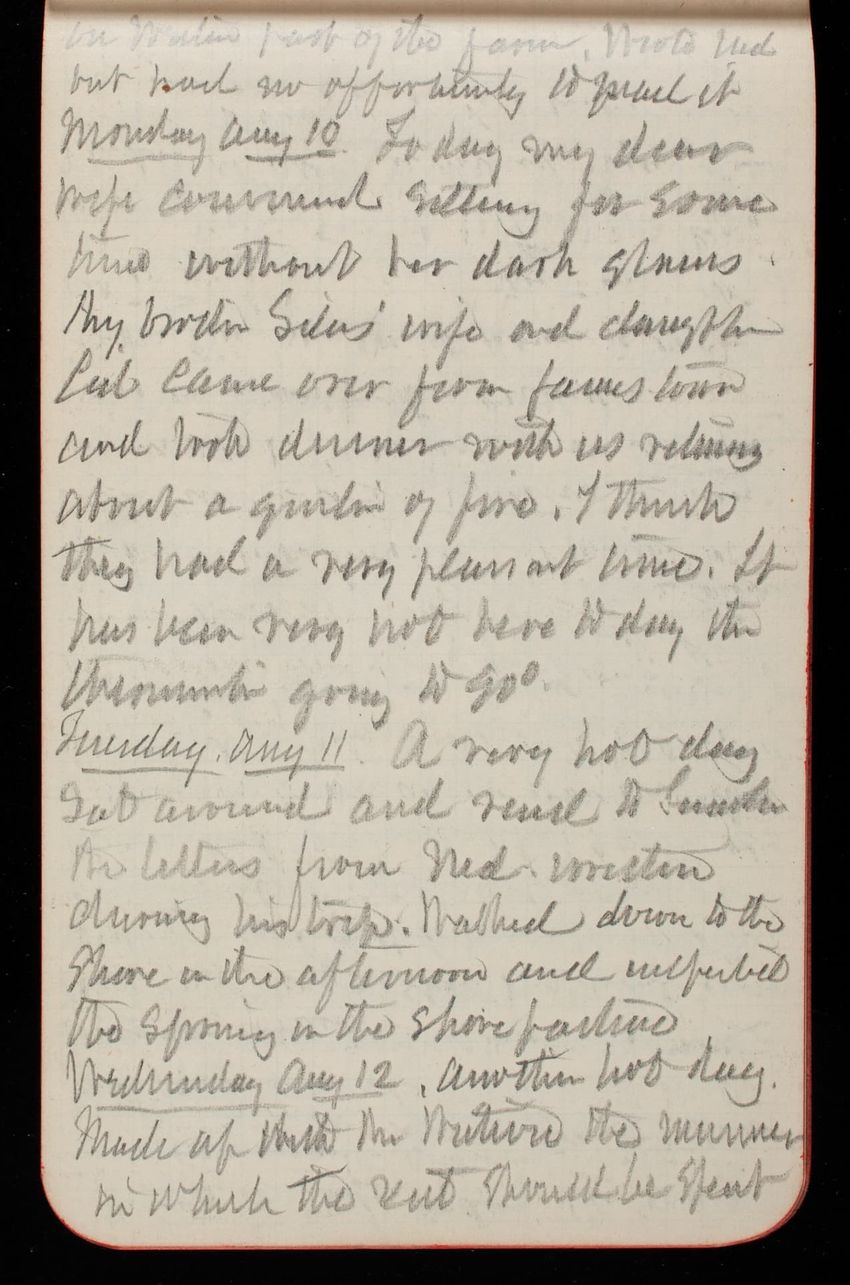 on part of the farm. Wrote Ned
but had no opportunity to mail it
Monday Aug 10 To day my dear
wife commenced sitting for some
time without her dark glasses.
My brother Silas' wife and daughter
came over from Jamestown
and took dinner with us returning
about a quarter of five. I think
they had a very pleasant time. It
has been very hot here to day the
thermometer going to 90°.
Tuesday. Aug 11 A very hot day
Sat around and read to
the letters from Ned. written
during his trip. Walked down to the
Shore in the afternoon and inspected
the Spring in the Shore pasture
Wednesday Aug 12. Another hot day.
Made up with Mr the manner
in which the rent should be spent